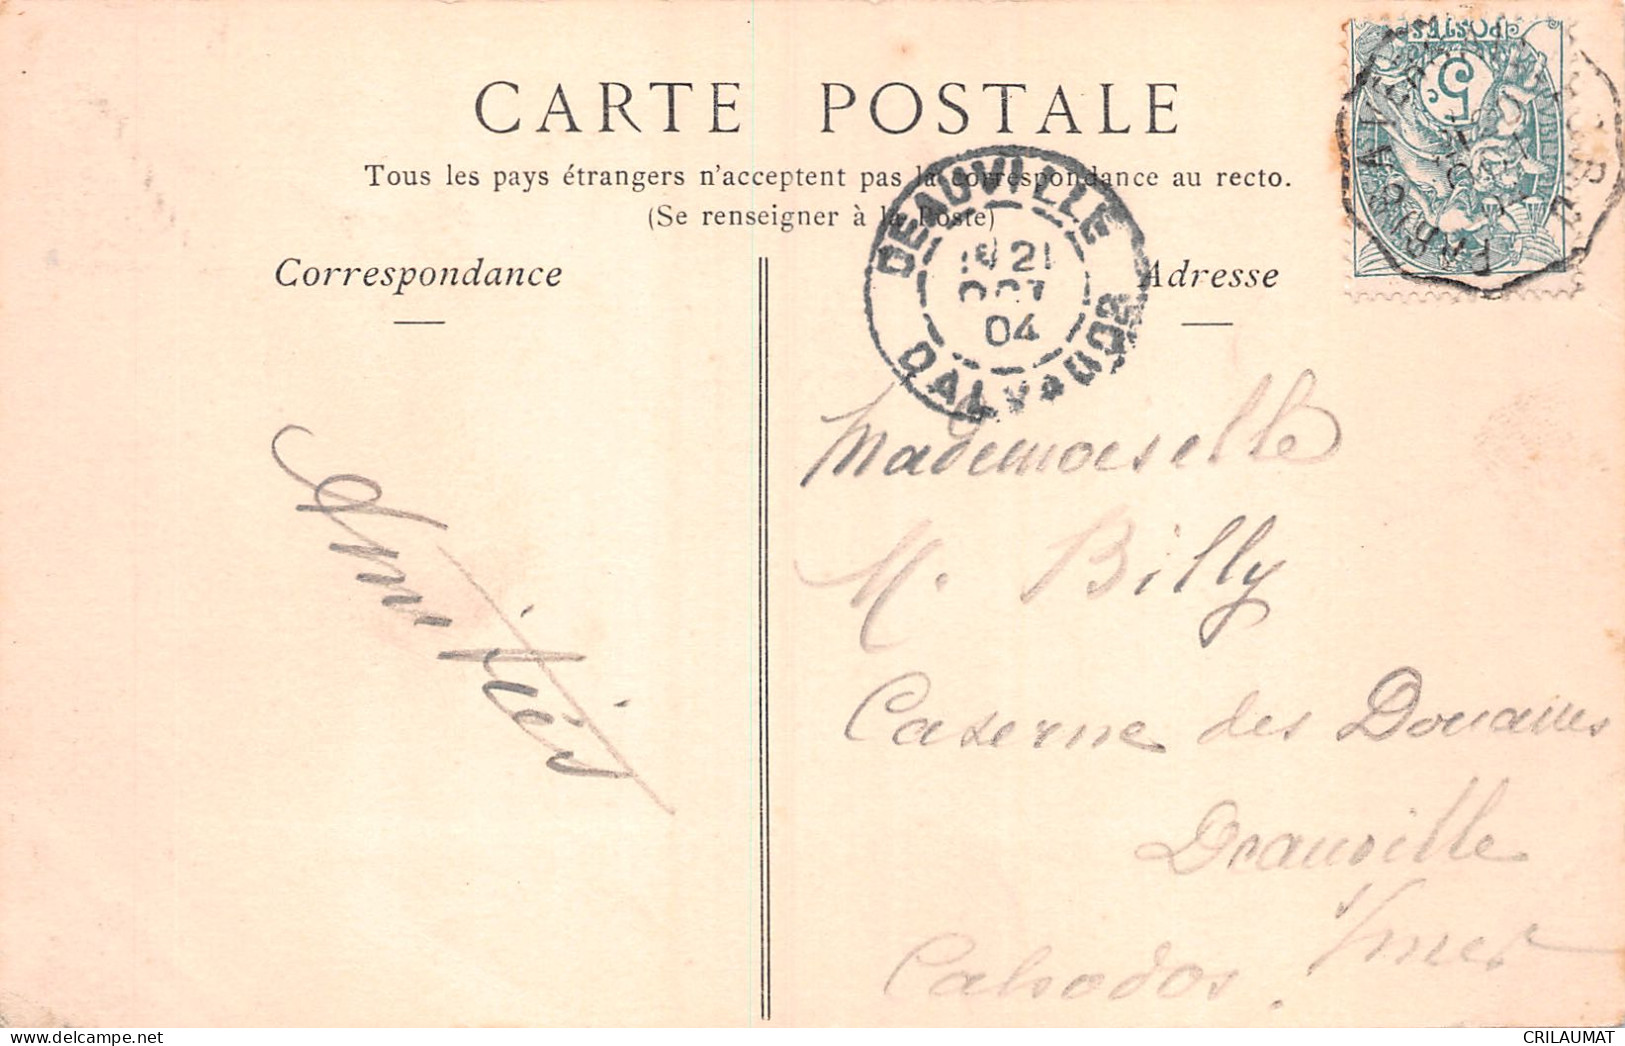 CARTE POSTALE
Tous les pays étrangers n'acceptent pas la correspondance au recto.
(Se renseigner à la Poste)
Correspondance
Adresse
POSTES
5c
DEAUVILLE
21
OCT
04
CALVADOS
Amitiés
Mademoiselle
M. Billy
Caserne des Douanes
Deauville
s/mer
Calvados.
CRILAUMAT